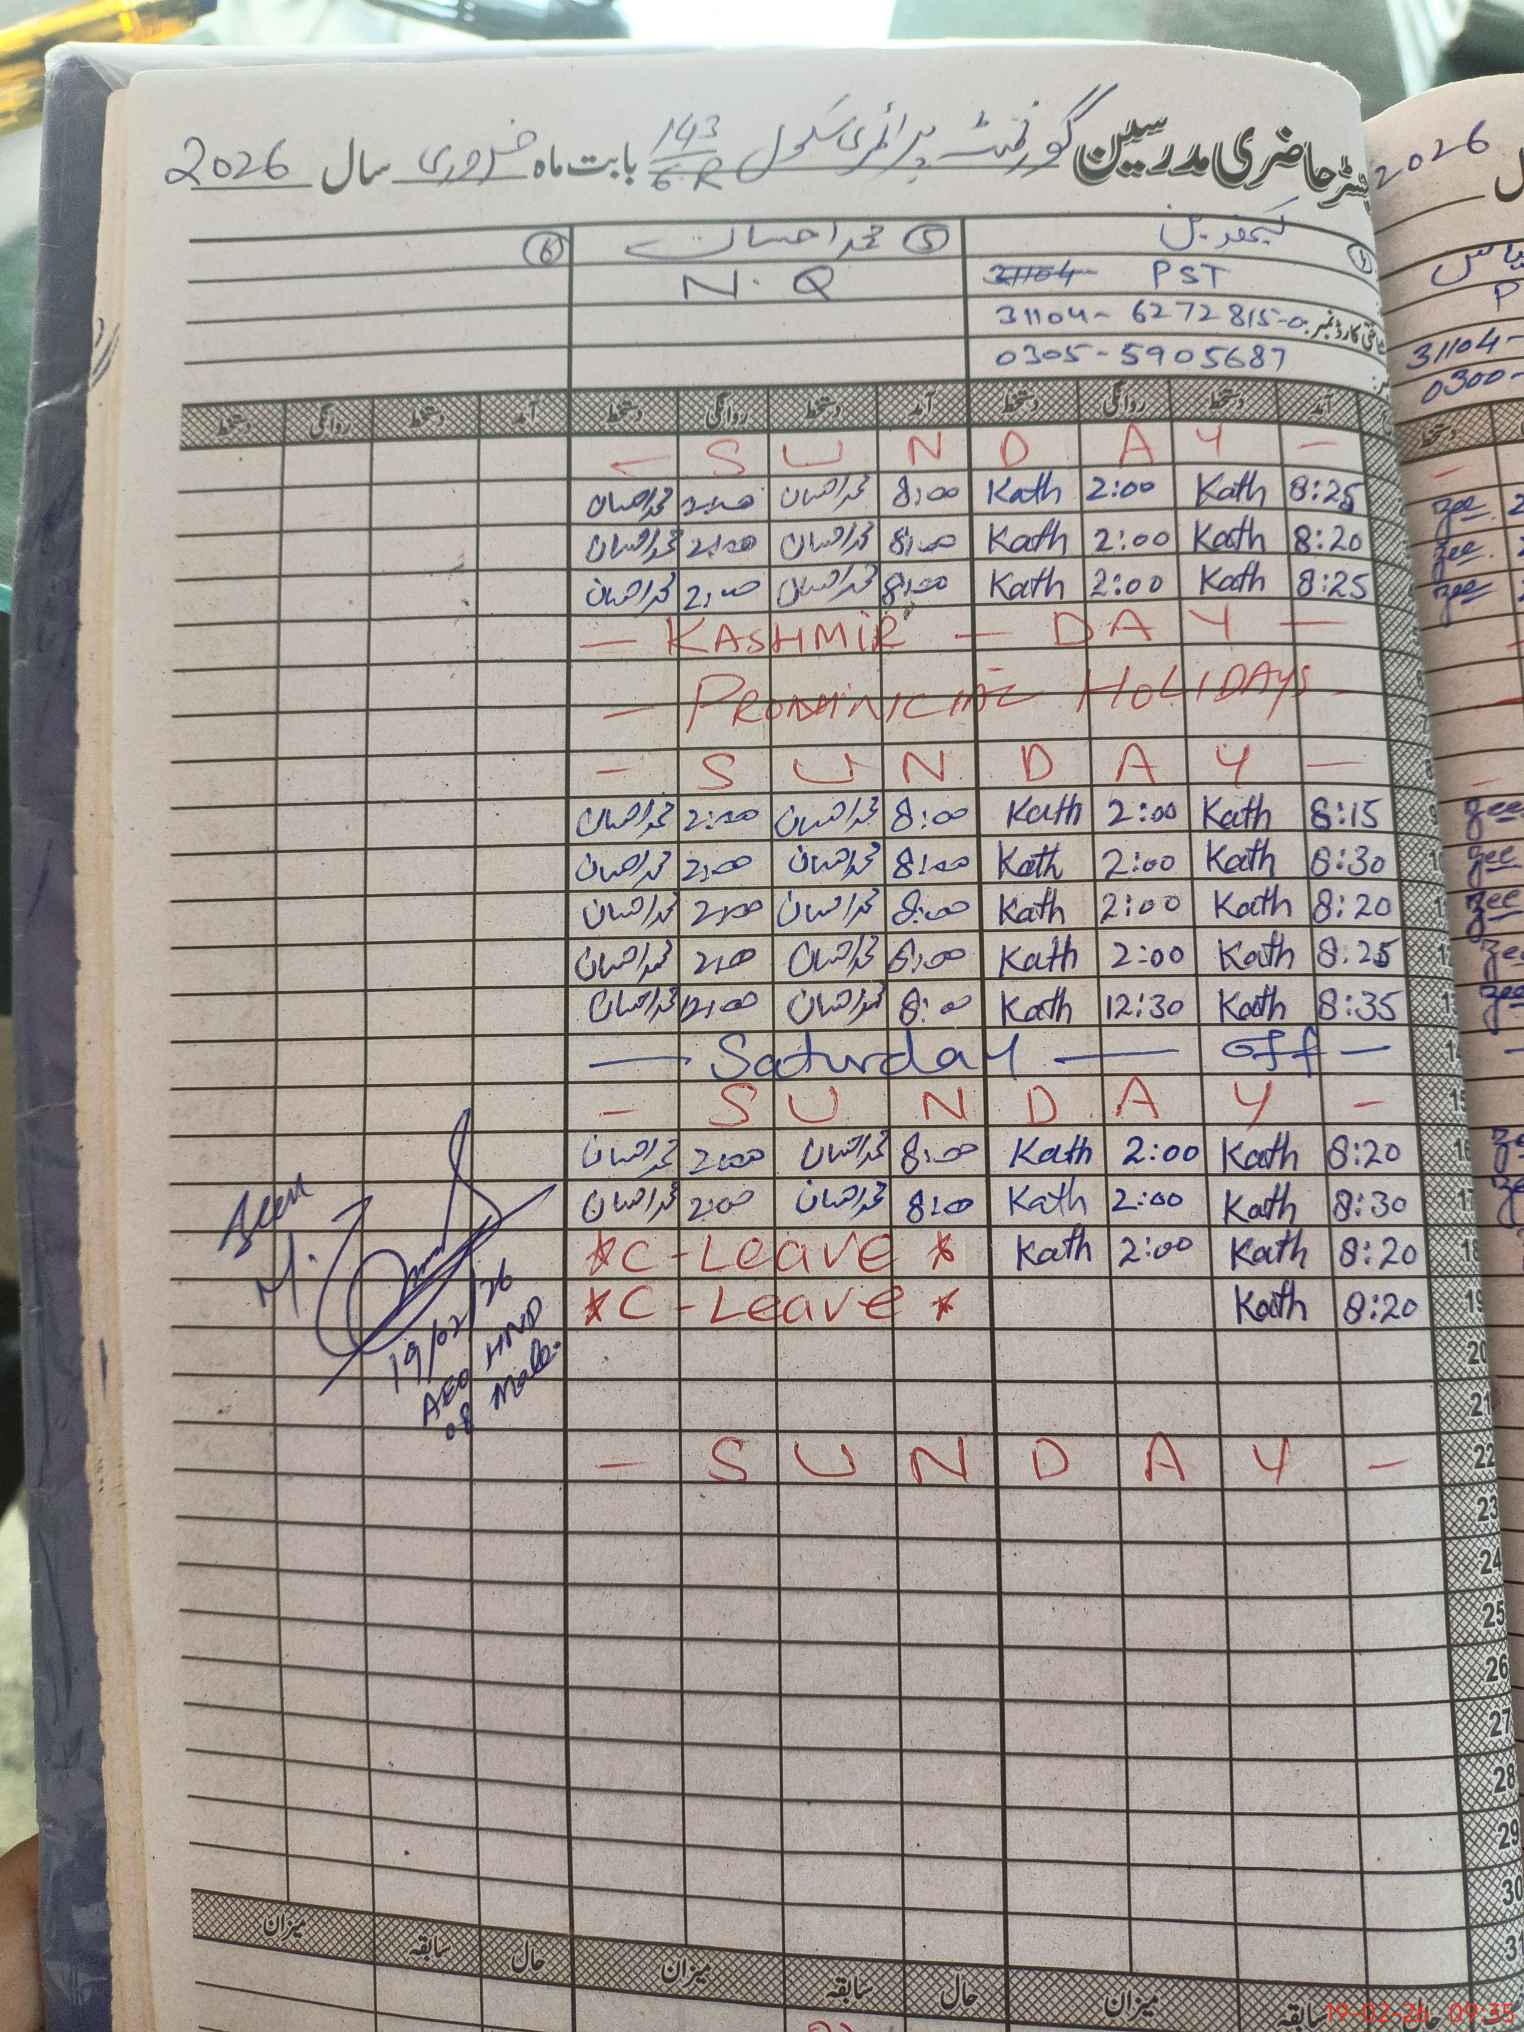 رجسٹر حاضری مدرسین گورنمنٹ پرائمری سکول 143/6-R بابت ماہ فروری سال 2026
2026
④ کیتھرین
⑤ محمد احسان
⑥
PST
N.Q
شناختی کارڈ نمبر: 31104-6272815-0
0305-5905687
31104-
0300-
آمد دستخط روانگی دستخط آمد دستخط روانگی دستخط آمد دستخط روانگی دستخط
- S U N D A Y -
8:25 Kath 2:00 Kath 8:00 محمد احسان 2:00 محمد احسان
8:20 Kath 2:00 Kath 8:00 محمد احسان 2:00 محمد احسان
8:25 Kath 2:00 Kath 8:00 محمد احسان 2:00 محمد احسان
- KASHMIR - DAY -
- HOLIDAYS -
- S U N D A Y -
8:15 Kath 2:00 Kath 8:00 محمد احسان 2:00 محمد احسان
8:30 Kath 2:00 Kath 8:00 محمد احسان 2:00 محمد احسان
8:20 Kath 2:00 Kath 8:00 محمد احسان 2:00 محمد احسان
8:25 Kath 2:00 Kath 8:00 محمد احسان 2:00 محمد احسان
8:35 Kath 12:30 Kath 8:00 محمد احسان 12:00 محمد احسان
— Saturday — off —
15 - S U N D A Y -
16 8:20 Kath 2:00 Kath 8:00 محمد احسان 2:00 محمد احسان
17 8:30 Kath 2:00 Kath 8:00 محمد احسان 2:00 محمد احسان
18 8:20 Kath 2:00 Kath *C-Leave*
19 8:20 Kath *C-Leave*
Seen
M.
19/02/26
AEO HND
08 Male.
20
21
22 - S U N D A Y -
23
24
25
26
27
28
29
30
31
سابقہ میزان حال سابقہ میزان حال سابقہ میزان
19-02-26 09:35